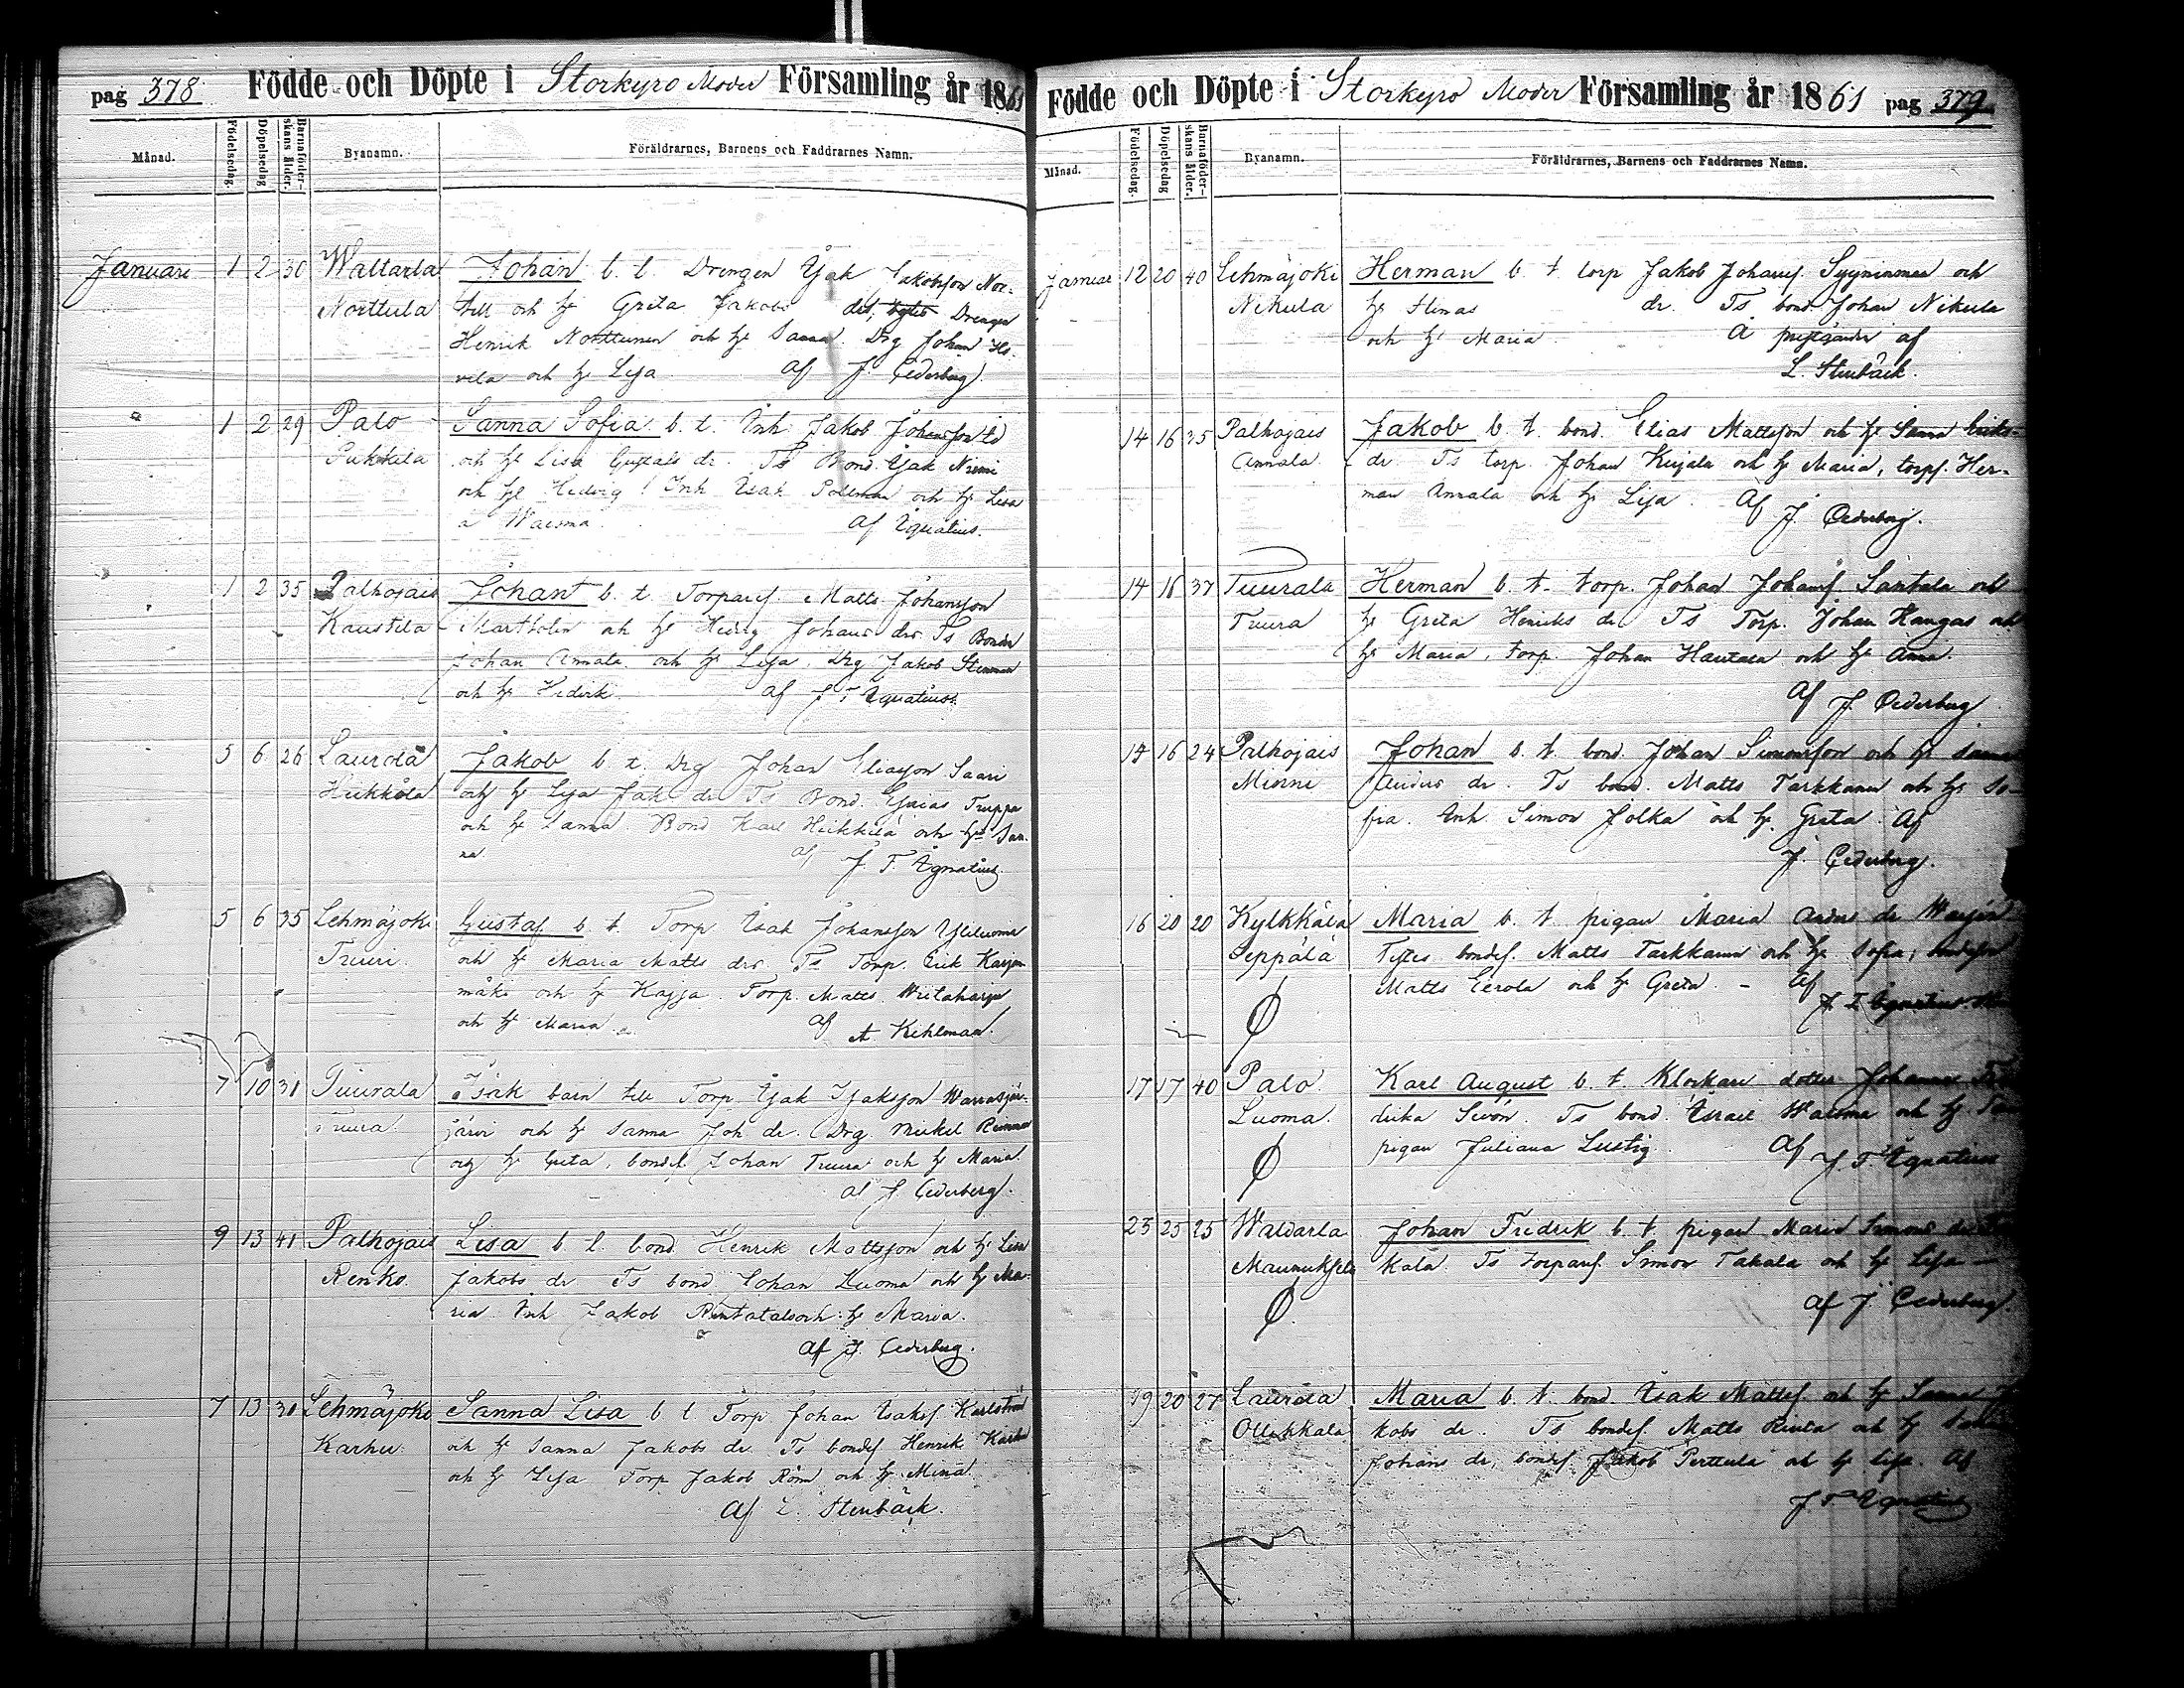 pag 378. Födde och Döpte i Storkyro Moder Församling år 1861
Månad. Födelsedag. Döpelsedag Barnaföder-skans ålder. Byanamn. Föräldrarnes, Barnens och Faddrarnes Namn.
Januari 1 2 30 Waltarla Johan b. t. Drengen Isak Jakobsson Nor-
Norttula till och h Greta Jakobs dr, Drengen
Henrik Norttunen och h Sanna. Drg Johan
och h Lisa af J. Cederberg.
1 2 29 Palo Sanna Sofia b. t. Inh Jakob Johansson
och h Lisa Gustafs dr. Ts Bond. Isak Niemi
och h Hedvig! Inh Isak och h Lisa
a Waisma. af Ignatius.
1 2 35 Palhojais Johan b. t. Torpares. Matts Johansson
Kaustila Martholin och h Hedvig Johans dr. Ts Bonden
Johan Annala och h Lisa, Drg Jakob Stenman
och h Hedvik. af J T Ignatius.
5 6 26 Laurola Jakob b t. Drg Johan Eliasson Saari
Heikkilä och h Lisa Jak dr Ts Bond. Truppa
och h Sanna. Bond Karl Heikkilä och h San-
na. af J. T. Ignatius.
5 6 35 Lehmäjoki Gustaf b. t. Torp Isak Johansson Yliluoma
Tuuri. och h Maria Matts dr. Ts Torp. Erik
mäki och h Kajsa. Torp. Matts Wiitaharju
och h Maria af A Kihlman.
7 10 31 Tuurala Isak barn till Torp. Isak Isaksson
Tuura. järvi och h Sanna Joh dr. Drg. Mickel
och h Greta, bondes. Johan Tuura och h Maria.
af J. Cederberg.
9 13 41 Palhojais Lisa b t. bond. Henrik Mattsson och h Lisa
Renko. Jakobs dr Ts bond Johan Luoma och h Ma-
ria Inh Jakob Rintatalo och h Maria.
af J. Cederberg.
7 13 30 Lehmäjoki Sanna Lisa b t Torp Johan Isaks. Karlström
Karhu och h Sanna Jakobs dr. Ts bondes Henrik Karhu
och h Lisa Torp Jakob och h Mina.
Af L. Stenbäck.
Födde och Döpte i Storkyro Moder Församling år 1861 pag 379.
Månad. Födelsedag. Döpelsedag Barnaföder-skans ålder. Byanamn. Föräldrarnes, Barnens och Faddrarnes Namn.
Januar 12 20 40 Lehmäjoki Herman b. t. torp Jakob Johans. och
Nikula h Stinas dr. Ts bond. Johan Nikula
och h Maria. Å prestgården af
L. Stenbäck.
14 16 35 Palhojais Jakob b. t. bond. Elias Mattsson och h Sanna Eriks-
Annala. dr. Ts torp. Johan Kujala och h Maria, torps. Her-
man Annala och h Lisa. Af
J. Cederberg.
14 18 37 Tuurala Herman b. t. torp. Johan Johans. Santala och
Tuura h Greta Henriks dr Ts Torp. Johan Kangas och
h Maria, torp. Johan Hautala och h Anna.
Af J. Cederberg
14 16 24 Palhojais Johan b. t. bond. Johan Simonsson och h Sanna
Minni Anders dr. Ts bond. Matts Tarkkanen och h So-
fia. Inh. Simon Jolka och h. Greta. Af
J. Cederberg.
16 20 20 Kylkkälä Maria b. t. pigan Maria Anders dr
Seppälä Testes bondes. Matts Tarkkanen och h Sofia,
Matts Eerola och h Greta. - Af
J. T. Ignatius.
17 17 40 Palo Karl August b. t. Klockare dotter Johanna
Luoma. drika Sivén. Ts bond. Israel Waisma och h
pigan Juliana Lustig. Af J T Ignatius
23 25 25 Waldarla Johan Fredrik b t pigan Maria Simons dr
Maunuksela kala. Ts Torpares. Simon Takala och h Lisa -
af J Cederberg.
19 20 27 Laurola Maria b. t. bond Isak Matts. och h Sanna
Ollikkala kobs dr. Ts bondes. Matts Rinta och h
Johans dr, bondes. Jakob Perttula och h Lisa. Af
J. T. Ignatius